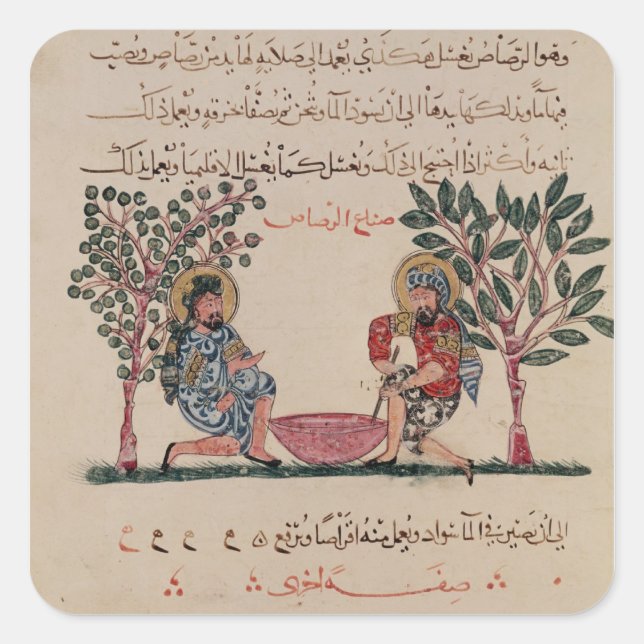 وهو الرصاص يغسل هكذى يعمد الى صلايه لها يد من رصاص ويصب
فيها ما ويدلك بها يدها الى ان يسود الما ويثخن ثم يصفا بخرقه ويعمل ذلك
ثانيه واكثر اذا احتيج الى ذلك ويغسل كما يغسل الاقليميا ويعمل ذلك
صناع الرصاص
الى ان يصير في الما سواد ويعمل منه اقراصا ويرفع
صفة اخرى